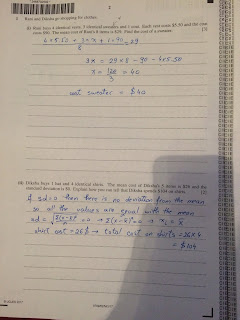 2
Rani and Diksha go shopping for clothes.
(i) Rani buys 4 identical vests, 3 identical sweaters and 1 coat. Each vest costs $5.50 and the coat
costs $90. The mean cost of Rani's 8 items is $29. Find the cost of a sweater. [3]
3x = 29×8 - 90 - 4×5.50
cost sweater = $40
(ii) Diksha buys 1 hat and 4 identical shirts. The mean cost of Diksha's 5 items is $26 and the
standard deviation is $0. Explain how you can tell that Diksha spends $104 on shirts. [2]
If sd=0 then there is no deviation from the mean
so all the values are equal with the mean
shirt cost = 26$ → total cost on shirts = 26×4
= $104